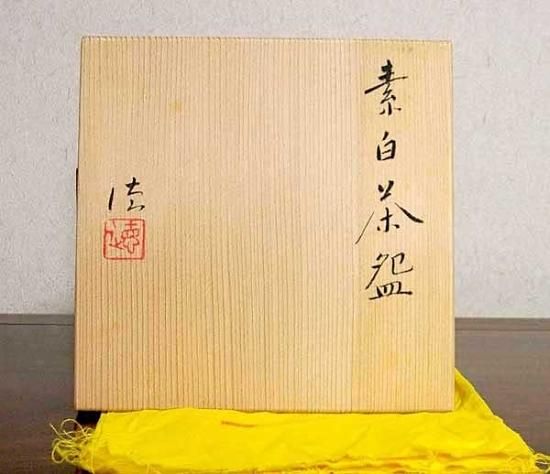 素白茶盌